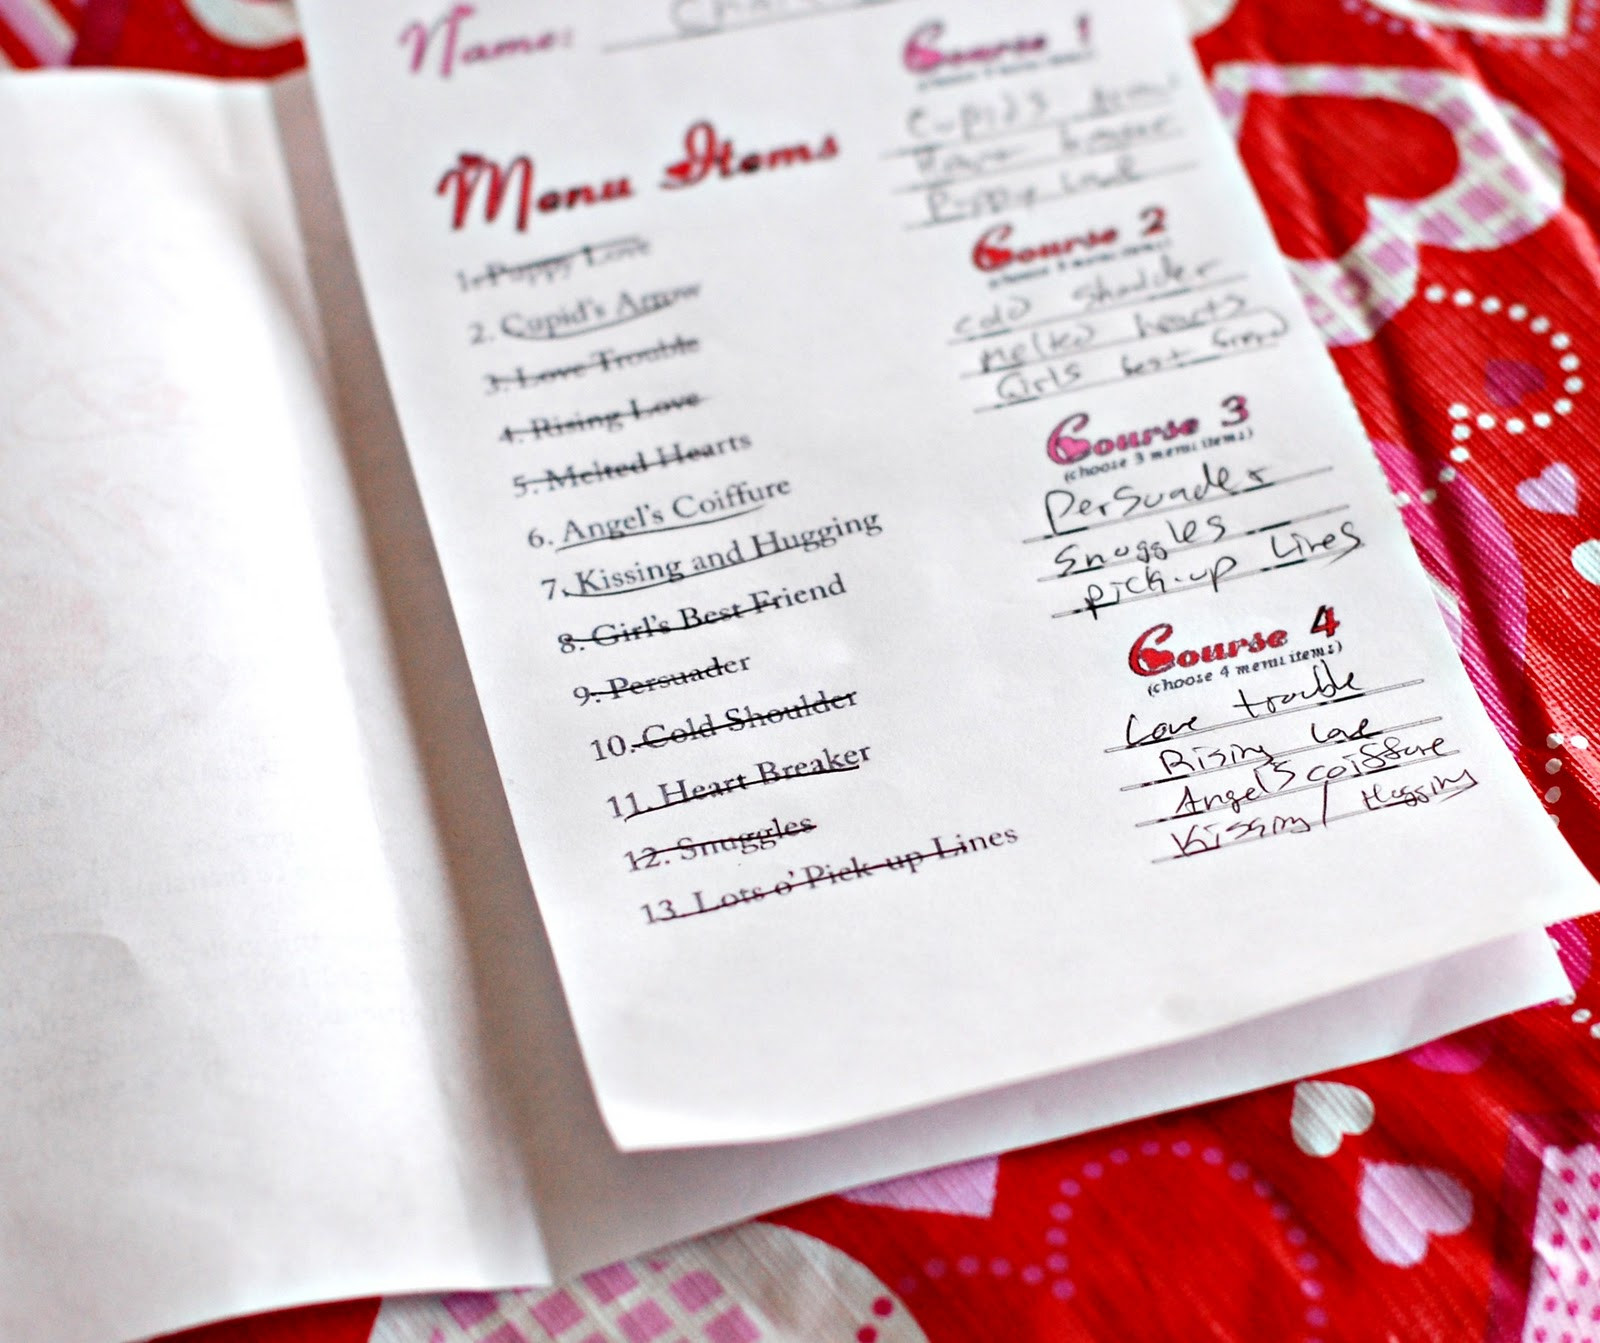 Name:
Menu Items
1. Puppy Love
2. Cupid's Arrow
3. Love Trouble
4. Rising Love
5. Melted Hearts
6. Angel's Coiffure
7. Kissing and Hugging
8. Girl's Best Friend
9. Persuader
10. Cold Shoulder
11. Heart Breaker
12. Snuggles
13. Lots o' Pick-up Lines
Course 1
Cupid's
Puppy Love
Course 2
(choose 3 menu items)
cold shoulder
Melted hearts
Girls best friend
Course 3
(choose 3 menu items)
Persuader
Snuggles
Pick-up Lines
Course 4
(choose 4 menu items)
Love trouble
Rising Love
Angel's coiffure
Kissing / Hugging